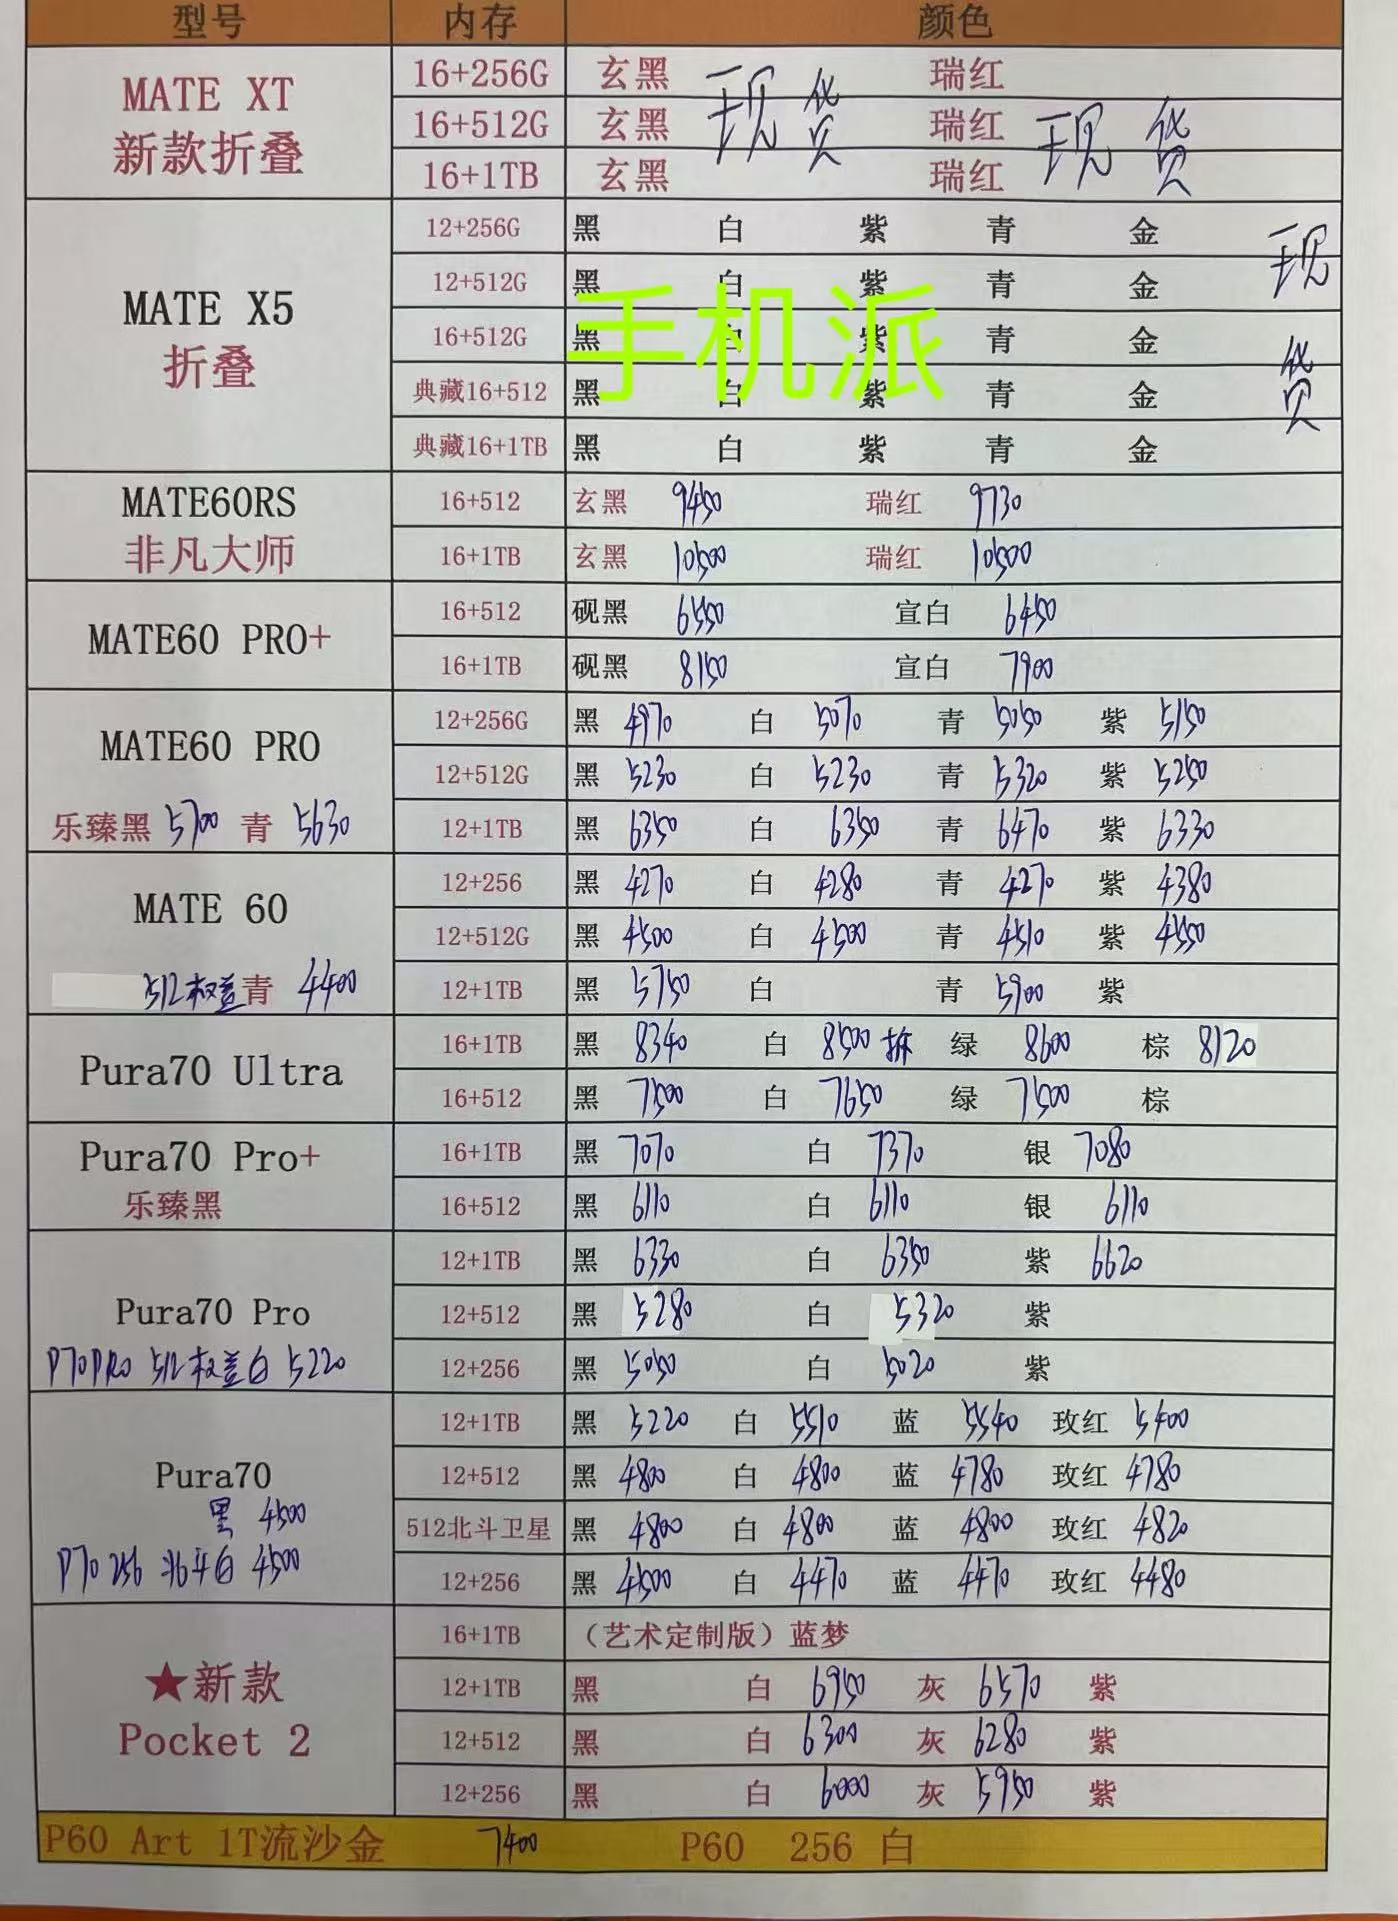 型号 内存 颜色
MATE XT 新款折叠
16+256G 玄黑 瑞红
16+512G 玄黑 现货 瑞红 现货
16+1TB 玄黑 瑞红
MATE X5 折叠
12+256G 黑 白 紫 青 金
现货
12+512G 黑 白 紫 青 金
手机派
16+512G 黑 白 紫 青 金
典藏16+512 黑 白 紫 青 金
典藏16+1TB 黑 白 紫 青 金
MATE60RS 非凡大师
16+512 玄黑 9450 瑞红 9730
16+1TB 玄黑 10500 瑞红 10500
MATE60 PRO+
16+512 砚黑 6550 宣白 6450
16+1TB 砚黑 8150 宣白 7900
MATE60 PRO
乐臻黑 5700 青 5630
12+256G 黑 4970 白 5070 青 5050 紫 5150
12+512G 黑 5230 白 5230 青 5320 紫 5250
12+1TB 黑 6350 白 6350 青 6470 紫 6330
MATE 60
512权益青 4400
12+256 黑 4270 白 4280 青 4270 紫 4380
12+512G 黑 4500 白 4500 青 4510 紫 4550
12+1TB 黑 5750 白 青 5900 紫
Pura70 Ultra
16+1TB 黑 8340 白 8500 拆 绿 8600 棕 8120
16+512 黑 7500 白 7650 绿 7500 棕
Pura70 Pro+
乐臻黑
16+1TB 黑 7070 白 7370 银 7080
16+512 黑 6110 白 6110 银 6110
Pura70 Pro
P70PRO 512权益白 5220
12+1TB 黑 6330 白 6350 紫 6620
12+512 黑 5280 白 5320 紫
12+256 黑 5050 白 5020 紫
Pura70
黑 4500
P70 256 北斗白 4500
12+1TB 黑 5220 白 5510 蓝 5540 玫红 5400
12+512 黑 4800 白 4800 蓝 4780 玫红 4780
512北斗卫星 黑 4800 白 4800 蓝 4800 玫红 4820
12+256 黑 4500 白 4470 蓝 4470 玫红 4480
★新款
Pocket 2
16+1TB (艺术定制版)蓝梦
12+1TB 黑 白 6950 灰 6570 紫
12+512 黑 白 6300 灰 6280 紫
12+256 黑 白 6000 灰 5950 紫
P60 Art 1T流沙金 7400 P60 256 白